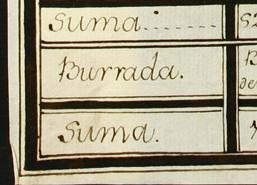 Suma......
Burrada.
Suma.